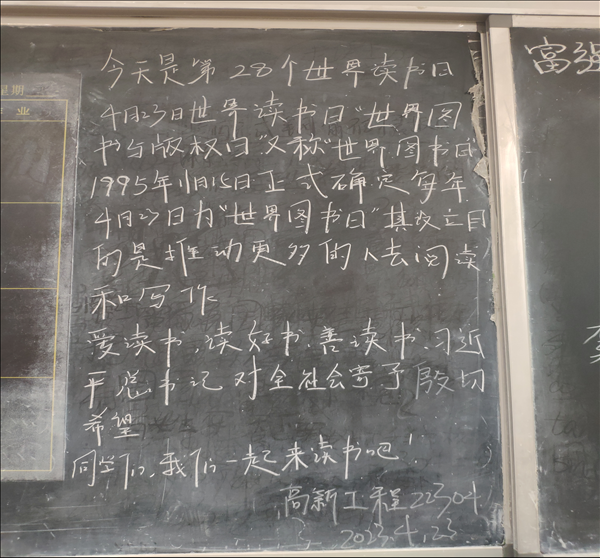 今天是第28个世界读书日
4月23日世界读书日"世界图
书与版权日"又称"世界图书日"
1995年11月15日正式确定每年
4月23日为"世界图书日"其设立目
的是推动更多的人去阅读
和写作
爱读书,读好书,善读书,习近
平总书记对全社会寄予殷切
希望
同学们,我们一起来读书吧!
高新工程2304
2023.4.23
星期
业
富强